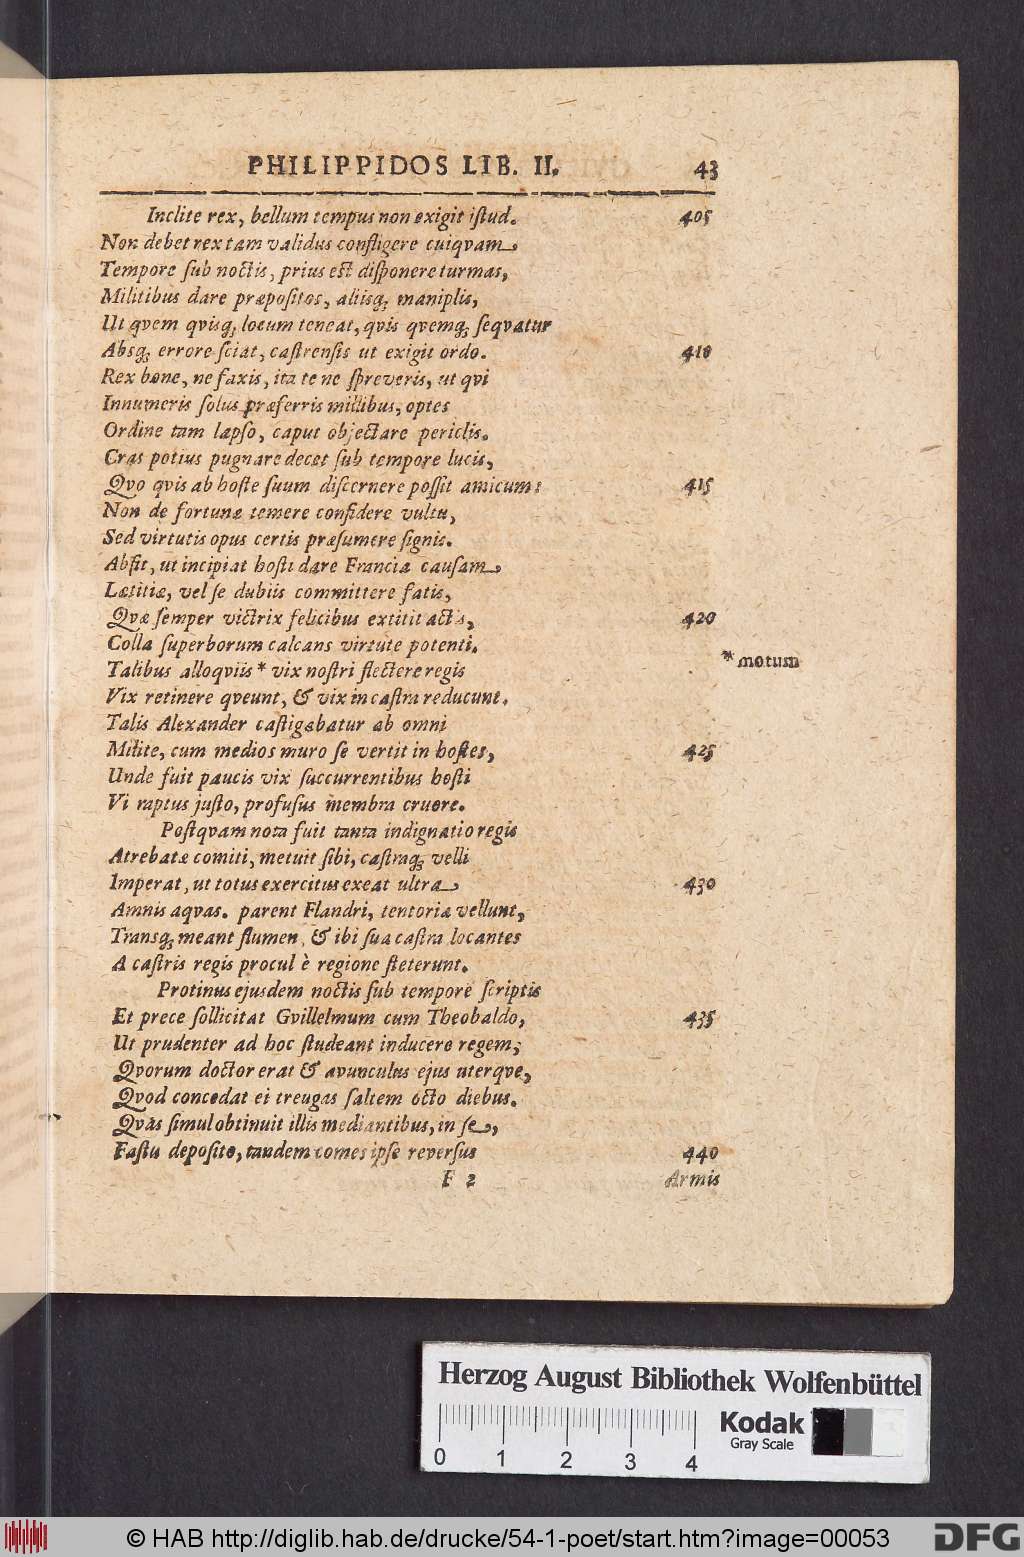 PHILIPPIDOS LIB. II. 43
Inclite rex, bellum tempus non exigit iſtud. 405
Non debet rex tam validus confligere cuiqvam
Tempore ſub noctis, prius eſt diſponere turmas,
Militibus dare præpoſitos, aliisq; maniplis,
Ut qvem qvisq; locum teneat, qvis qvemq; ſeqvatur
Absq; errore ſciat, caſtrenſis ut exigit ordo. 410
Rex bone, ne faxis, ita te ne ſpreveris, ut qvi
Innumeris ſolus præferris millibus, optes
Ordine tam lapſo, caput objectare periclis.
Cras potius pugnare decet ſub tempore lucis,
Qvo qvis ab hoſte ſuum diſcernere poſſit amicum: 415
Non de fortunæ temere confidere vultu,
Sed virtutis opus certis præſumere ſignis.
Abſit, ut incipiat hoſti dare Francia cauſam
Lætitiæ, vel ſe dubiis committere fatis,
Qvæ ſemper victrix felicibus extitit actis, 420
Colla ſuperborum calcans virtute potenti.
Talibus alloqviis * vix noſtri flectere regis * motum
Vix retinere qveunt, & vix in caſtra reducunt.
Talis Alexander caſtigabatur ab omni
Milite, cum medios muro ſe vertit in hoſtes, 425
Unde fuit paucis vix ſuccurrentibus hoſti
Vi raptus juſto, profuſus membra cruore.
Poſtqvam nota fuit tanta indignatio regis
Atrebatæ comiti, metuit ſibi, caſtraq; velli
Imperat, ut totus exercitus exeat ultra 430
Amnis aqvas. parent Flandri, tentoria vellunt,
Transq; meant flumen, & ibi ſua caſtra locantes
A caſtris regis procul è regione ſteterunt.
Protinus ejusdem noctis ſub tempore ſcriptis
Et prece ſollicitat Gvillelmum cum Theobaldo, 435
Ut prudenter ad hoc ſtudeant inducere regem;
Qvorum doctor erat & avunculus ejus uterqve,
Qvod concedat ei treugas ſaltem octo diebus.
Qvas ſimul obtinuit illis mediantibus, in ſe,
Faſtu depoſito, tandem comes ipſe reverſus 440
F 2 Armis
Herzog August Bibliothek Wolfenbüttel
Kodak
Gray Scale
0 1 2 3 4
© HAB http://diglib.hab.de/drucke/54-1-poet/start.htm?image=00053
DFG